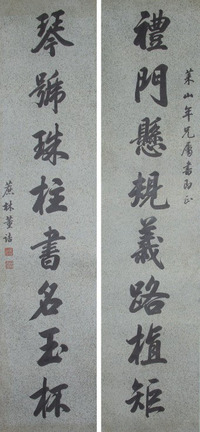 禮門懸規義路植矩
萊山年兄屬書即正
琴號珠柱書名玉杯
蔗林董誥